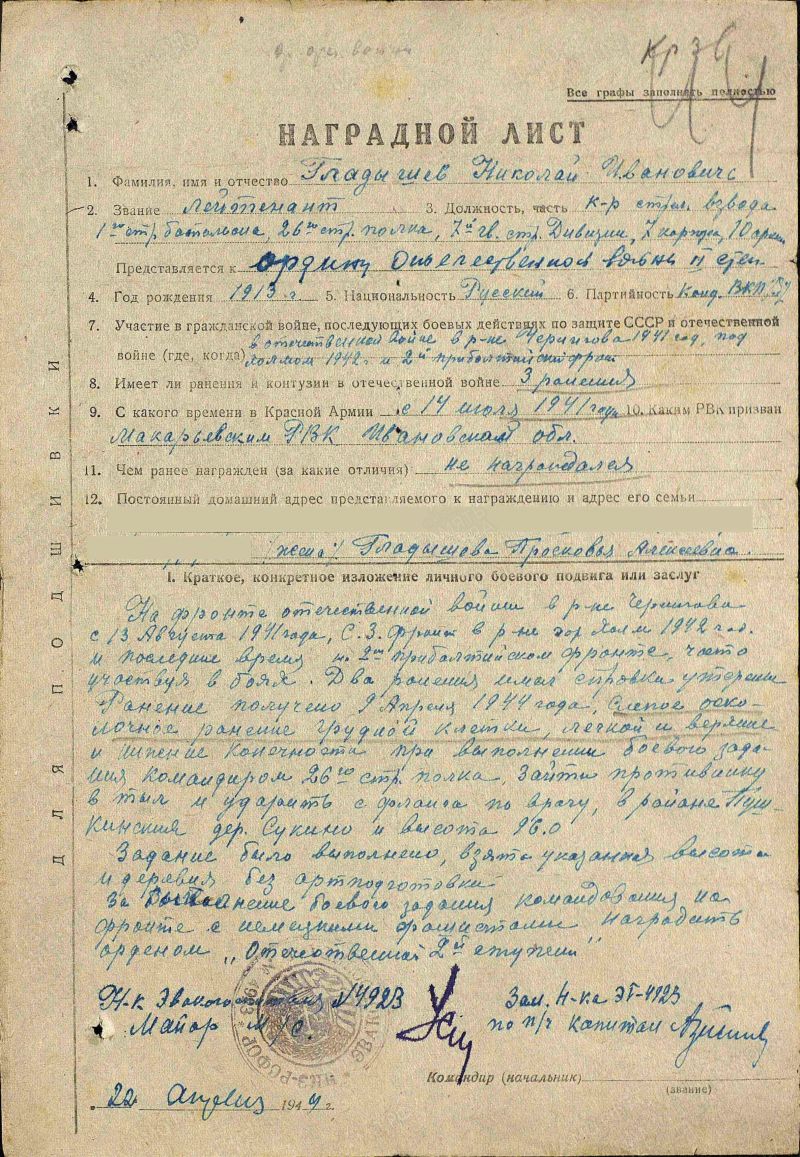 Все графы заполнять полностью
НАГРАДНОЙ ЛИСТ
1. Фамилия, имя и отчество Гладышев Николай Иванович
2. Звание лейтенант 3. Должность, часть к-р стрел. взвода
1го стр. батальона, 26го стр. полка, 7й гв. стр. Дивизии, 7 корпуса, 10 армии
Представляется к ордену Отечественной войны II степ
4. Год рождения 1913 г 5. Национальность Русский 6. Партийность Канд. ВКП(б)
7. Участие в гражданской войне, последующих боевых действиях по защите СССР и отечественной
войне (где, когда) в отечественной войне в р-не Чернигова 1941 год, под
Холмом 1942 г и 2й прибалтийский фронт
8. Имеет ли ранения и контузии в отечественной войне 3 ранения
9. С какого времени в Красной Армии с 14 июля 1941 года 10. Каким РВК призван
Макарьевским РВК Ивановской обл.
11. Чем ранее награжден (за какие отличия) не награждался
12. Постоянный домашний адрес представляемого к награждению и адрес его семьи
(жена) Гладышова Просковья Алексеевна.
I. Краткое, конкретное изложение личного боевого подвига или заслуг
На фронте отечественной войны в р-не Чернигова
с 13 Августа 1941 года, С.З. фронт в р-не гор Холм 1942 год.
и последнее время на 2ом прибалтийском фронте, часто
участвуя в боях. Два ранения имел справки утеряны
Ранение получено 9 Апреля 1944 года, слепое оско-
лочное ранение грудной клетки, легкой и верхние
и нижние конечности при выполнении боевого зада-
ния командиром 26го стр. полка, зайти противнику
в тыл и ударить с фланга по врагу, в районе Пуш-
кинския дер. Сукино и высота 96.0
Задание было выполнено, взята указанная высота
и деревня без артподготовки
За выполнение боевого задания командования на
фронте с немецкими фашистами наградить
орденом „Отечественной 2й ступени"
Н-к Эвакогоспиталя №4923
Майор м/с.
Зам. Н-ка ЭГ-4923
по п/ч капитан
Командир (начальник)
(звание)
22 Апреля 1944 г.
ДЛЯ ПОДШИВКИ